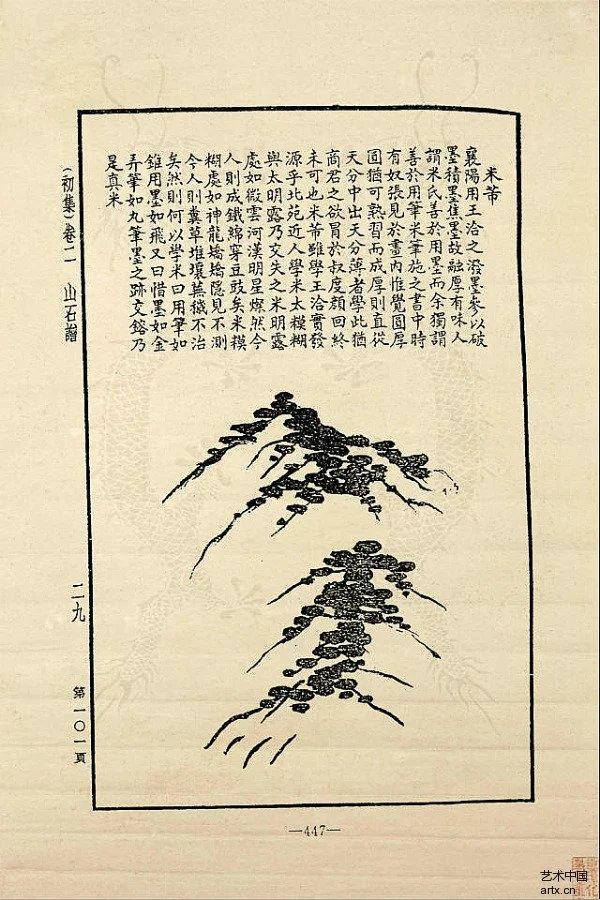 米芾
襄陽用王洽之潑墨參以破
墨積墨焦墨故融厚有味人
謂米氏善於用墨而余獨謂
善於用筆米筆施之書中時
有奴張見於畫內惟覺圓厚
圓猶可熟習而成厚則直從
天分中出天分薄者學此猶
商君之欲冒於叔度顏回終
未可也米芾雖學王洽實發
源乎北苑近人學米太模糊
與太明露乃交失之米明露
處如微雲河漢明星燦然今
人則成鐵線穿豆豉矣米模
糊處如神龍矯矯隱見不測
今人則糞草堆壤蕪穢不治
矣然則何以學米曰用筆如
錐用墨如飛又曰惜墨如金
弄筆如丸筆墨之跡交鎔乃
是真米
（初集）卷二 山石譜
二九
第一〇一頁
—447—
艺术中国
artx.cn